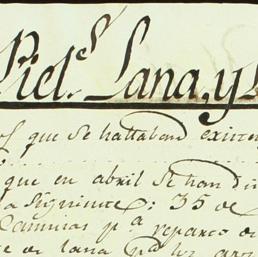 Piel.es Lana, y
que se hallaban existen
que en abril se han di
la siguiente: 35 de
Camisas p.a reparo
de lana p.a los